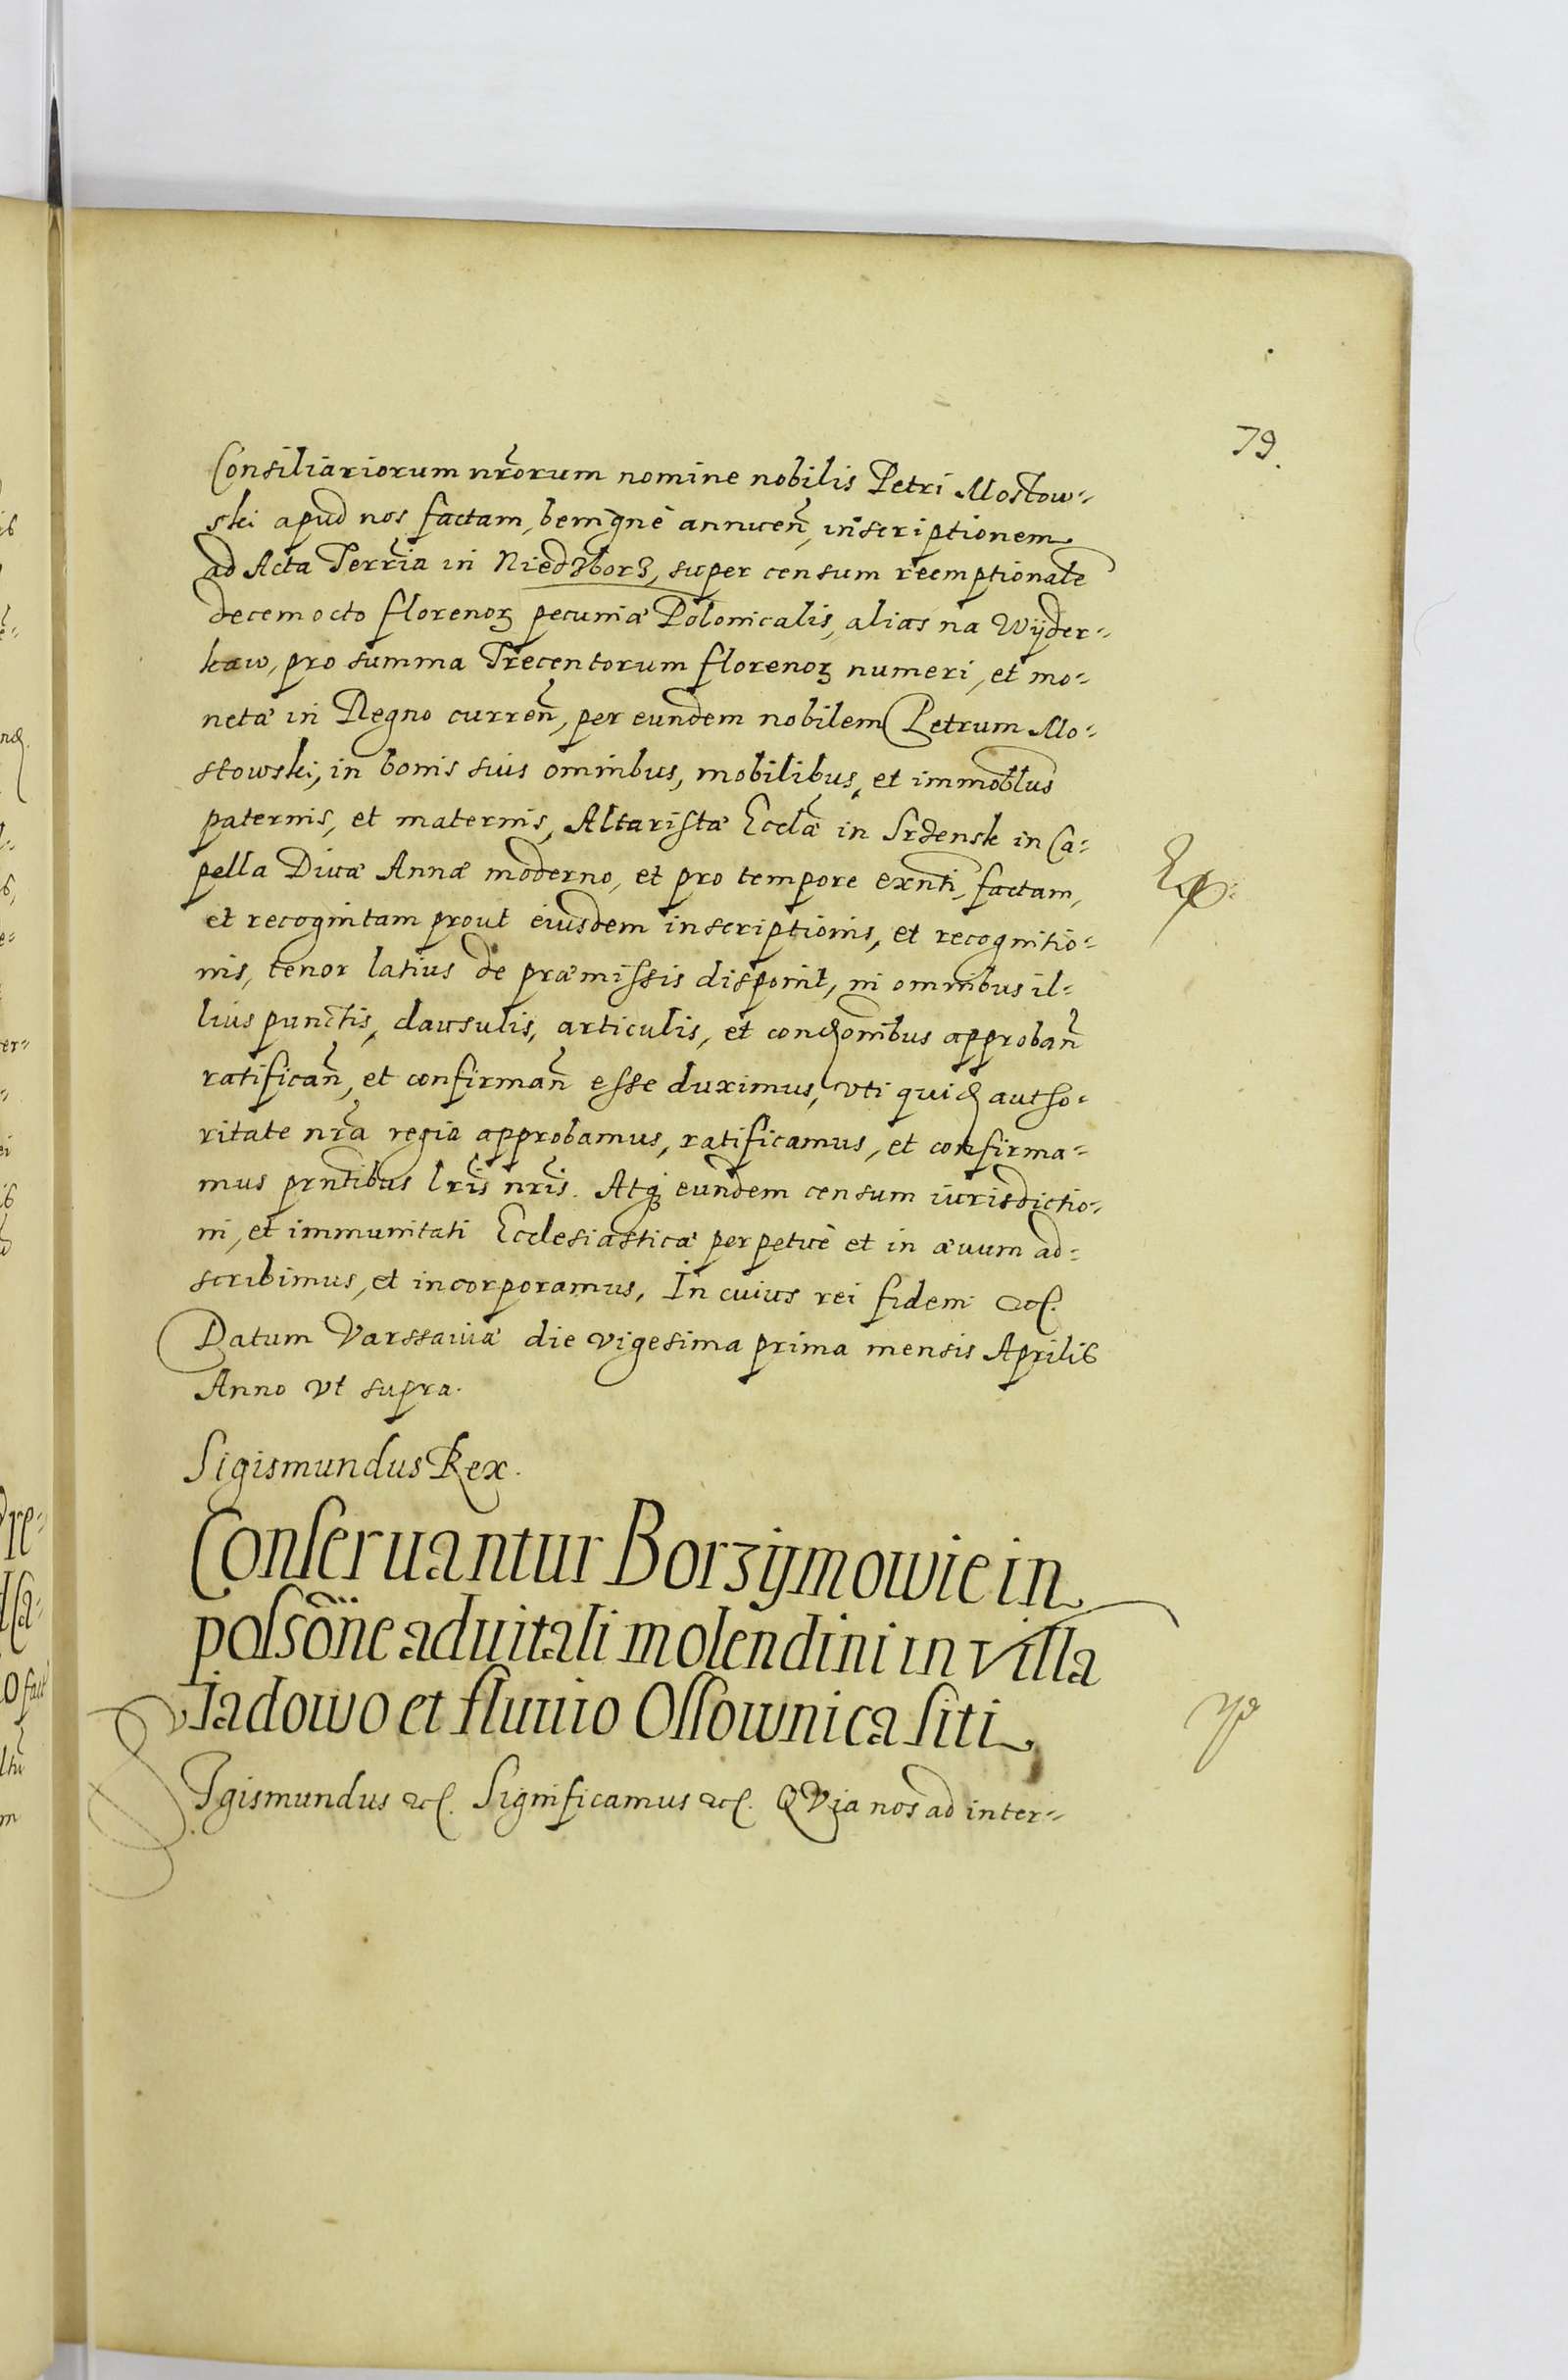 79.
Consiliariorum nr̃orum nomine nobilis Petri Mostow⸗
ski apud nos factam, benignè annuen̄, inscriptionem
ad Acta Terrr̃ia in Niedzborz, super censum reemptionale
decem octo florenoꝝ pecuniæ Polonicalis, alias na Wÿder⸗
kaw, pro summa Trecentorum florenoꝝ numeri, et mo⸗
netæ in Regno curren̄, per eundem nobilem Petrum Mo⸗
stowski, in bonis suis omnibus, mobilibus, et immobl̃us
paternis, et maternis, Altaristæ Eccl̃æ in Srzensk in Ca⸗
pella Diuæ Annæ moderno, et pro tempore exñti, factam,
et recognitam prout eiusdem inscriptionis, et recognitio⸗
nis, tenor latius de præmissis disponit, in omnibus il⸗
lius punctis, clausulis, articulis, et condonibus approban̄
ratifican̄, et confirman̄ esse duximus, vti quid autho⸗
ritate nr̃a regia approbamus, ratificamus, et confirma⸗
mus prñtibus lr̃is nr̃is. Atqꝫ eundem censum iurisdictio⸗
ni, et immunitati Ecclesiasticæ perpetuè et in æuum ad⸗
scribimus, et incorporamus, In cuius rei fidem etc.
Datum Varssauiæ die vigesima prima mensis Aprilis
Anno vt supra.
Sigismundus Rex.
Conseruantur Borzÿmowie in
possõne aduitali molendini in villa
Jadowo et fluuio Ossownica siti
SIgismundus etc. Significamus etc. QVia nos ad inter⸗